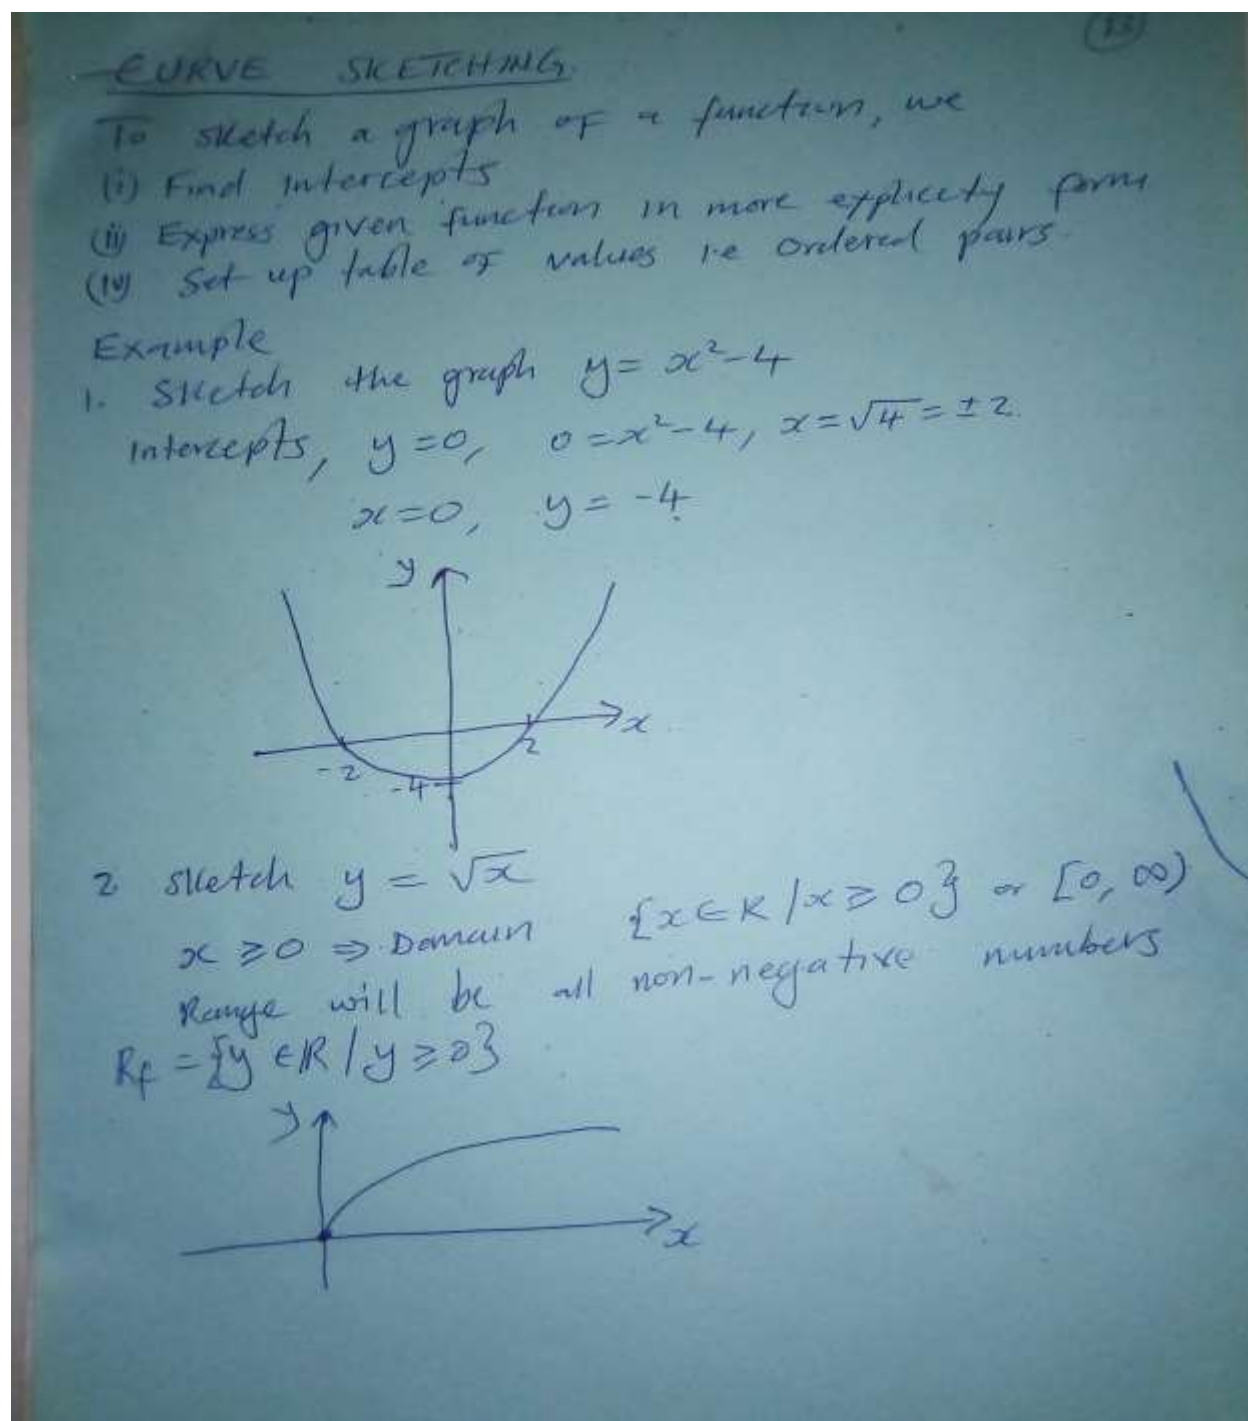 CURVE SKETCHING
To sketch a graph of a function, we
(i) Find intercepts
(ii) Express given function in more explicity form
(iv) Set up table of values i.e ordered pairs.
Example
1. Sketch the graph y = x² - 4
Intercepts, y = 0, 0 = x² - 4, x = √4 = ± 2.
x = 0, y = -4.
y
x
-2
2
-4
2 Sketch y = √x
x ≥ 0 ⇒ Domain {x ∈ R / x ≥ 0} or [0, ∞)
Range will be all non-negative numbers
Rf = {y ∈ R / y ≥ 0}
y
x